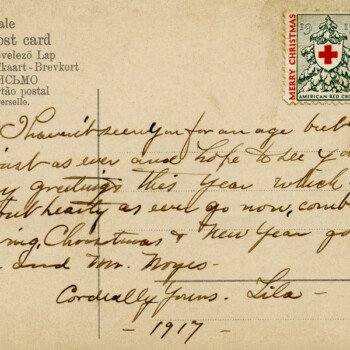 ale
ost card
velező Lap
fkaart - Brevkort
ИСЬМО
rtão postal
verselle.
MERRY CHRISTMAS
19
AMERICAN RED CR
I haven't seen you for an age but
just as ever and hope to see yo
greetings this year which
but hearty as ever go now, comb
ing, Christmas & New Year go
and Mr. Noyes -
Cordially Yours. Lila -
- 1917 -